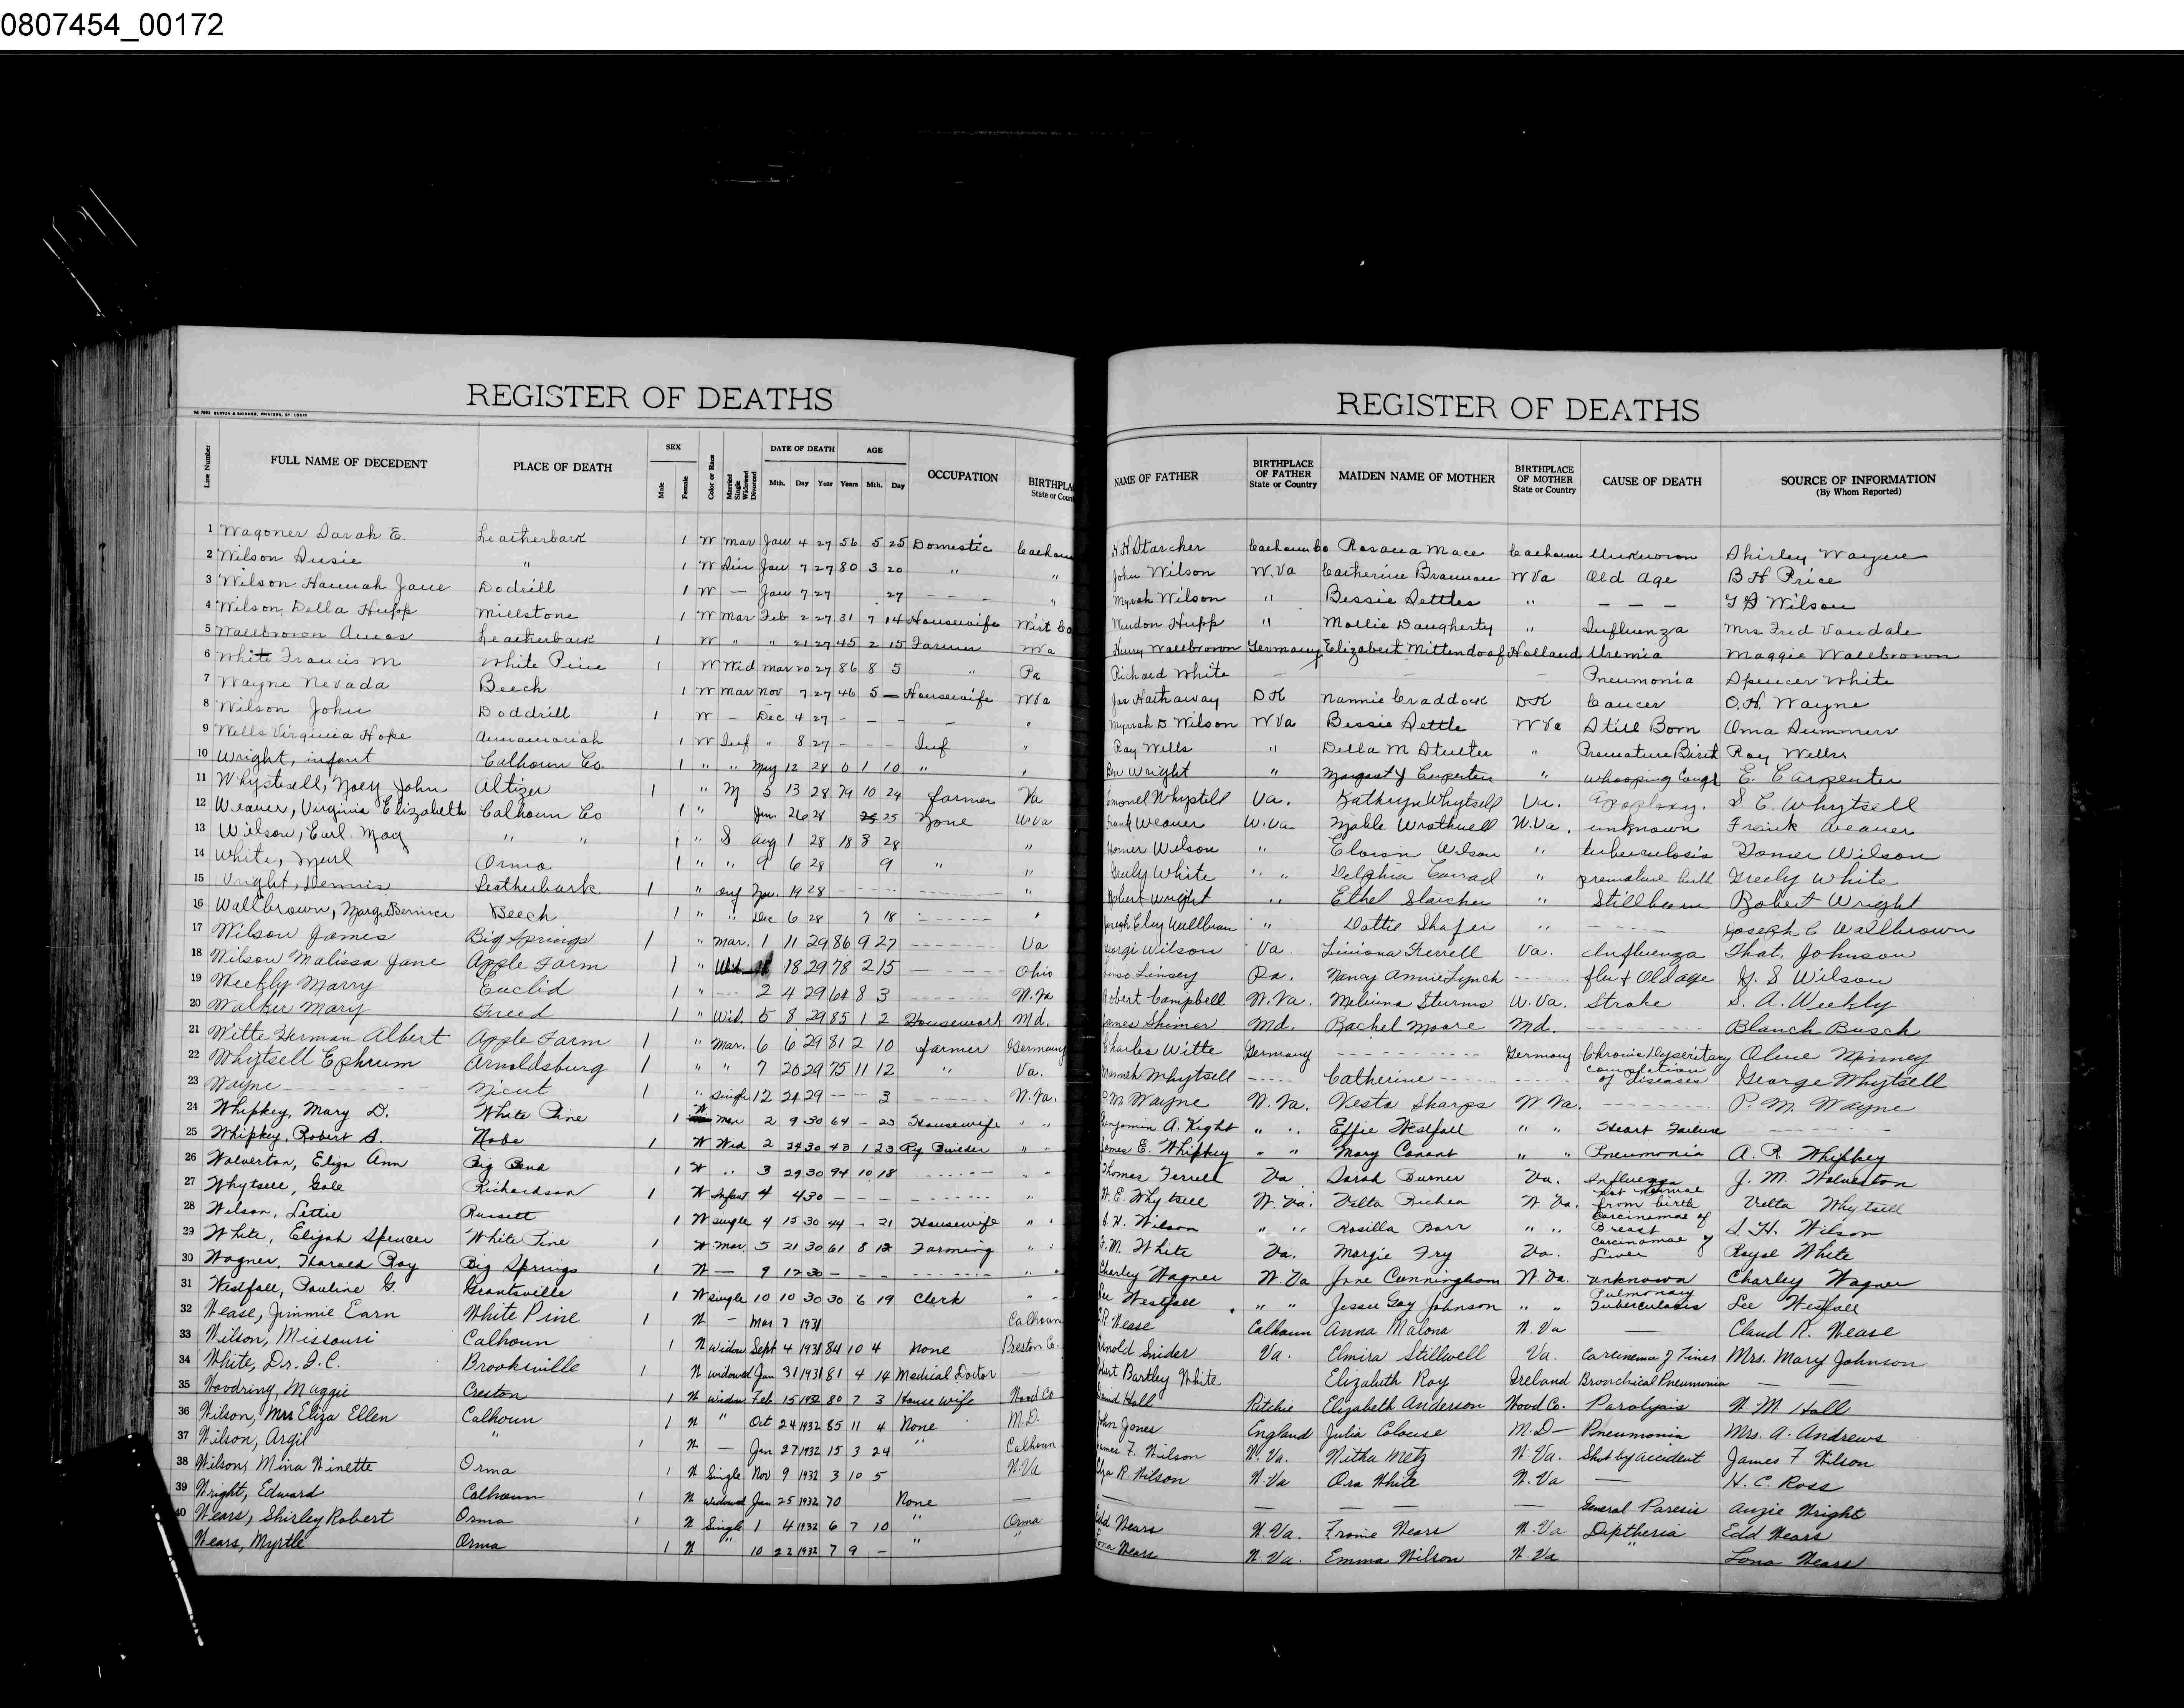 0807454_00172
REGISTER OF DEATHS
REGISTER OF DEATHS
Line Number FULL NAME OF DECEDENT PLACE OF DEATH SEX Male Female Color or Race Married Single Widowed Divorced DATE OF DEATH Mth. Day Year AGE Years Mth. Day OCCUPATION BIRTHPLA State or Coun NAME OF FATHER BIRTHPLACE OF FATHER State or Country MAIDEN NAME OF MOTHER BIRTHPLACE OF MOTHER State or Country CAUSE OF DEATH SOURCE OF INFORMATION (By Whom Reported)
1 Wagoner Sarah E. Leatherbark 1 W Mar Jan 4 27 56 5 25 Domestic Calhoun H H Starcher Calhoun Co Rosana Mace Calhoun Unknown Shirley Wayne
2 Wilson Susie " 1 W Sin Jan 7 27 80 3 20 " " John Wilson W.Va Catherine Brannan W Va Old Age B H Price
3 Wilson Hannah Jane Dodrill 1 W — Jan 7 27 27 - - - " Myrah Wilson " Bessie Settles " — — — Wilson
4 Wilson, Della Hupp Millstone 1 W Mar Feb 2 27 31 7 14 Housewife Wirt Co Hupp " Mollie Daugherty " Influenza Mrs Fred Vandale
5 Wallbrown Amos Leatherbark 1 W " " 21 27 45 2 15 Farmer W Va Henry Wallbrown Germany Elizabeth Mittendoof Holland Uremia Maggie Wallbrown
6 White Francis M White Pine 1 W Wid Mar 20 27 86 8 5 " Pa Richard White — — — Pneumonia Spencer White
7 Wayne Nevada Beech 1 W Mar Nov 7 27 46 5 — Housewife W Va Jas Hathaway D K Nannie Craddock D K Cancer O. H. Wayne
8 Wilson John Doddrill 1 W - Dec 4 27 - - - - " Myrah D Wilson W Va Bessie Settle W Va Still Born Oma Summers
9 Wells Virginia Hope Annamoriah 1 W Inf " 8 27 - - - Inf " Ray Wells " Della M Stutler " Premature Birth Ray Wells
10 Wright, infant Calhoun Co. 1 " " May 12 28 0 1 10 " " Wright " Margaret J " Whooping Cough E. Carpenter
11 Whytsell, Noey John Altizer 1 " M 5 13 28 79 10 24 farmer Va Whytsell Va. Kathryn Whytsell Va. Apoplexy. S C. Whytsell
12 Weaver, Virginia Elizabeth Calhoun Co 1 " Jan. 26 28 25 25 None W.Va Frank Weaver W.Va Mable Wrothwell W.Va. unknown Frank Weaver
13 Wilson, Earl May " " 1 " S Aug 1 28 18 3 28 " Homer Wilson " Wilson " tuberculosis Homer Wilson
14 White, Murl Orma 1 " " 9 6 28 9 " " Greely White " " Delphia Conrad " premature birth Greely White
15 Wright, Dennis Leatherbark 1 " inf Nov. 19 28 - - - - " Robert Wright " Ethel Starcher " Stillborn Robert Wright
16 Wallbrown, Bernice Beech 1 " " Dec 6 28 7 18 - - - " Joseph Wallbrown " Dottie Shafer " - - - Joseph C Wallbrown
17 Wilson James Big Springs 1 " Mar. 1 11 29 86 9 27 - - - Va George Wilson Va Ferrell Va. Influenza That. Johnson
18 Wilson Malissa Jane Apple Farm 1 " Wid. 18 29 78 2 15 - - - Ohio Linsey Pa. Nancy Annie Lynch - - - flu & Old age G. S Wilson
19 Weekly Marry Euclid 1 " --- 2 4 29 64 8 3 - - - W.Va Robert Campbell W.Va. Melvina Sturms W.Va. Stroke S. A. Weekly
20 Walker Mary Freed 1 " Wid. 5 8 29 85 1 2 Housework Md. James Shimer Md. Rachel Moore Md. - - - Blanch Busch
21 Witte Herman Albert Apple Farm 1 " Mar. 6 6 29 81 2 10 farmer Germany Charles Witte Germany - - - Germany Chronic Dysentary Oline Minney
22 Whytsell Ephrum Arnoldsburg 1 " " 7 20 29 75 11 12 " Va. Whytsell - - - Catherine - - - of diseases George Whytsell
23 Wayne - - - Nicut 1 " Single 12 24 29 - - 3 - - - W.Va. P. M. Wayne W.Va. Vesta Sharps W Va. - - - P. M. Wayne
24 Whipkey, Mary D. White Pine 1 W Mar 2 9 30 64 - 23 Housewife " " Benjamin A. Kight " " Effie Westfall " " Heart Failure - - -
25 Whipkey, Robert S. Nobe 1 W Wid 2 24 30 43 1 23 Ry Builder " " James E. Whipkey " " Mary Conant " " Pneumonia A. R. Whipkey
26 Wolverton, Eliza Ann Big Bend 1 W " 3 29 30 94 10 18 - - - " " Thomas Ferrell Va Sarah Burner Va. Influenza J. M. Wolverton
27 Whytsell, Gale Richardson 1 W Infant 4 4 30 - - - - - - " W. E. Whytsell W. Va. Velta Richea W. Va. not normal from birth Velta Whytsell
28 Wilson, Lettie Russett 1 W single 4 15 30 44 - 21 Housewife " " S. H. Wilson " " Rosilla Barr " " Carcinamae of Breast S. H. Wilson
29 White, Elijah Spencer White Pine 1 W Mar. 5 21 30 61 8 12 Farming " " F. M. White Va. Margie Fry Va. Carcinamae of Liver Royal White
30 Wagner, Harold Roy Big Springs 1 W — 9 12 30 - - - - - - " " Charley Wagner W. Va Jane Cunningham W. Va. unknown Charley Wagner
31 Westfall, Pauline G. Grantsville 1 W single 10 10 30 30 6 19 Clerk " " Lee Westfall " " Jessie Gay Johnson " " Pulmonary Tuberculosis Lee Westfall
32 Wease, Jimmie Earn White Pine 1 W — Mar 7 1931 Calhoun C.R. Wease Calhoun Anna Malone W. Va — Claud R. Wease
33 Wilson, Missouri Calhoun 1 W widow Sept 4 1931 84 10 4 None Preston Co. Arnold Snider Va. Elmira Stillwell Va. Carcinema Mrs. Mary Johnson
34 White, Dr. I. C. Brooksville 1 W widowed Jan 31 1931 81 4 14 Medical Doctor — Robert Bartley White Elizabeth Roy Ireland Bronchrical Pneumonia — —
35 Woodring, Maggie Creston 1 W widow Feb 15 1932 80 7 3 House wife Wood Co David Hall Ritchie Elizabeth Anderson Wood Co. Paralysis W. M Hall
36 Wilson, Mrs Eliza Ellen Calhoun 1 W " Oct 24 1932 85 11 4 None M.D. John Jones England Julia Colouse M.D — Pneumonia Mrs. A. Andrews
37 Wilson, Argil " 1 W — Jan 27 1932 15 3 24 " Calhoun James F. Wilson W. Va. Nitha Metz W. Va. Shot by accident James F. Wilson
38 Wilson, Mina Winette Orma 1 W Single Nov 9 1932 3 10 5 W. Va R. Wilson W. Va Ora White W. Va — H. C. Ross
39 Wright, Edward Calhoun 1 W widowed Jan 25 1932 70 None — — — — — General Paresis Angie Wright
40 Wears, Shirley Robert Orma 1 W Single 1 4 1932 6 7 10 " Orma Edd Wears W. Va. Fronie Wears W. Va Diptheria Edd Wears
Wears, Myrtle Orma 1 W " 10 22 1932 7 9 — " " Lona Wears W. Va. Emma Wilson W. Va " Lona Wears